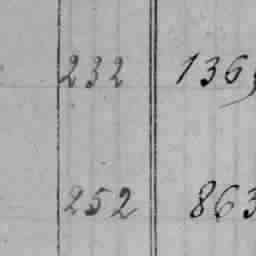 232 136
252 863